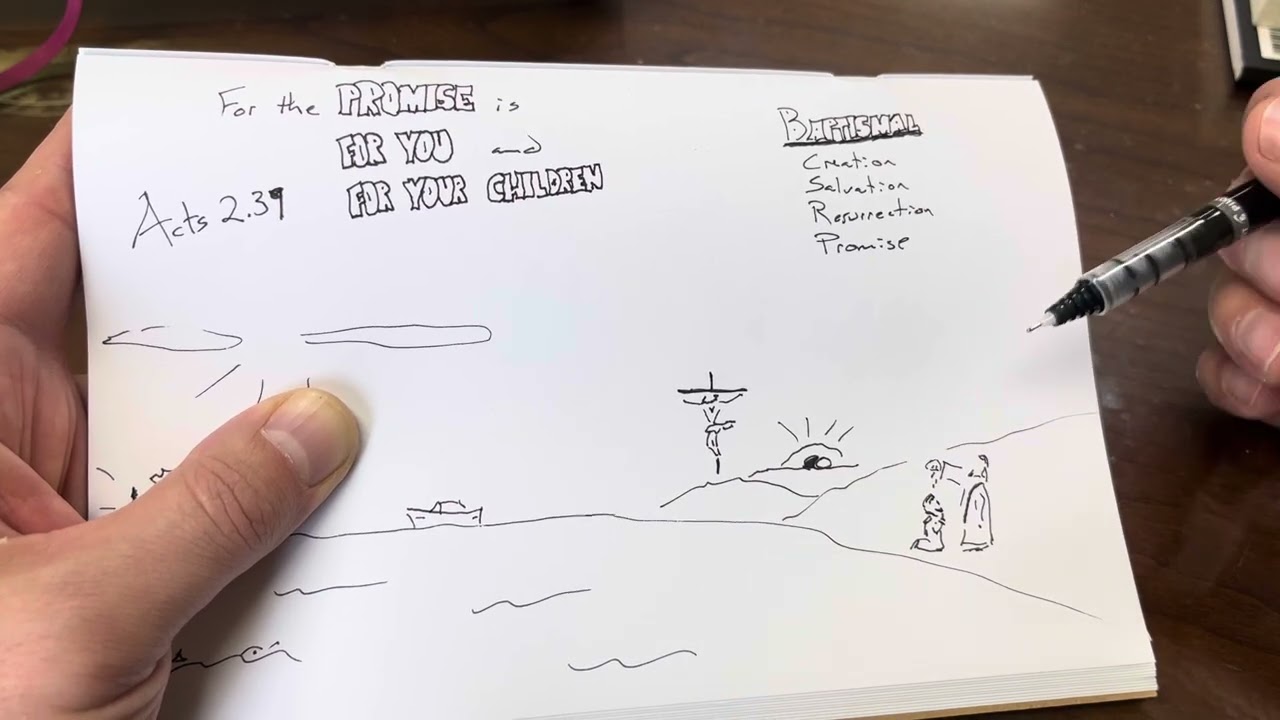 For the PROMISE is
FOR YOU and
FOR YOUR CHILDREN
Acts 2.39
BAPTISMAL
Creation
Salvation
Resurrection
Promise